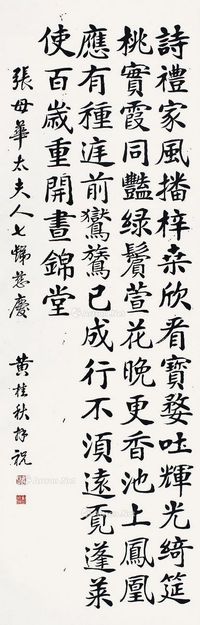 詩禮家風播梓桒欣看寶婺吐輝光綺筵
桃實霞同豔綠鬢萱花晚更香池上鳳凰
應有種庭前鸑鷟已成行不須遠覓蓬萊
使百歲重開晝錦堂
張母華太夫人七慈慶
黃桂秋拜祝